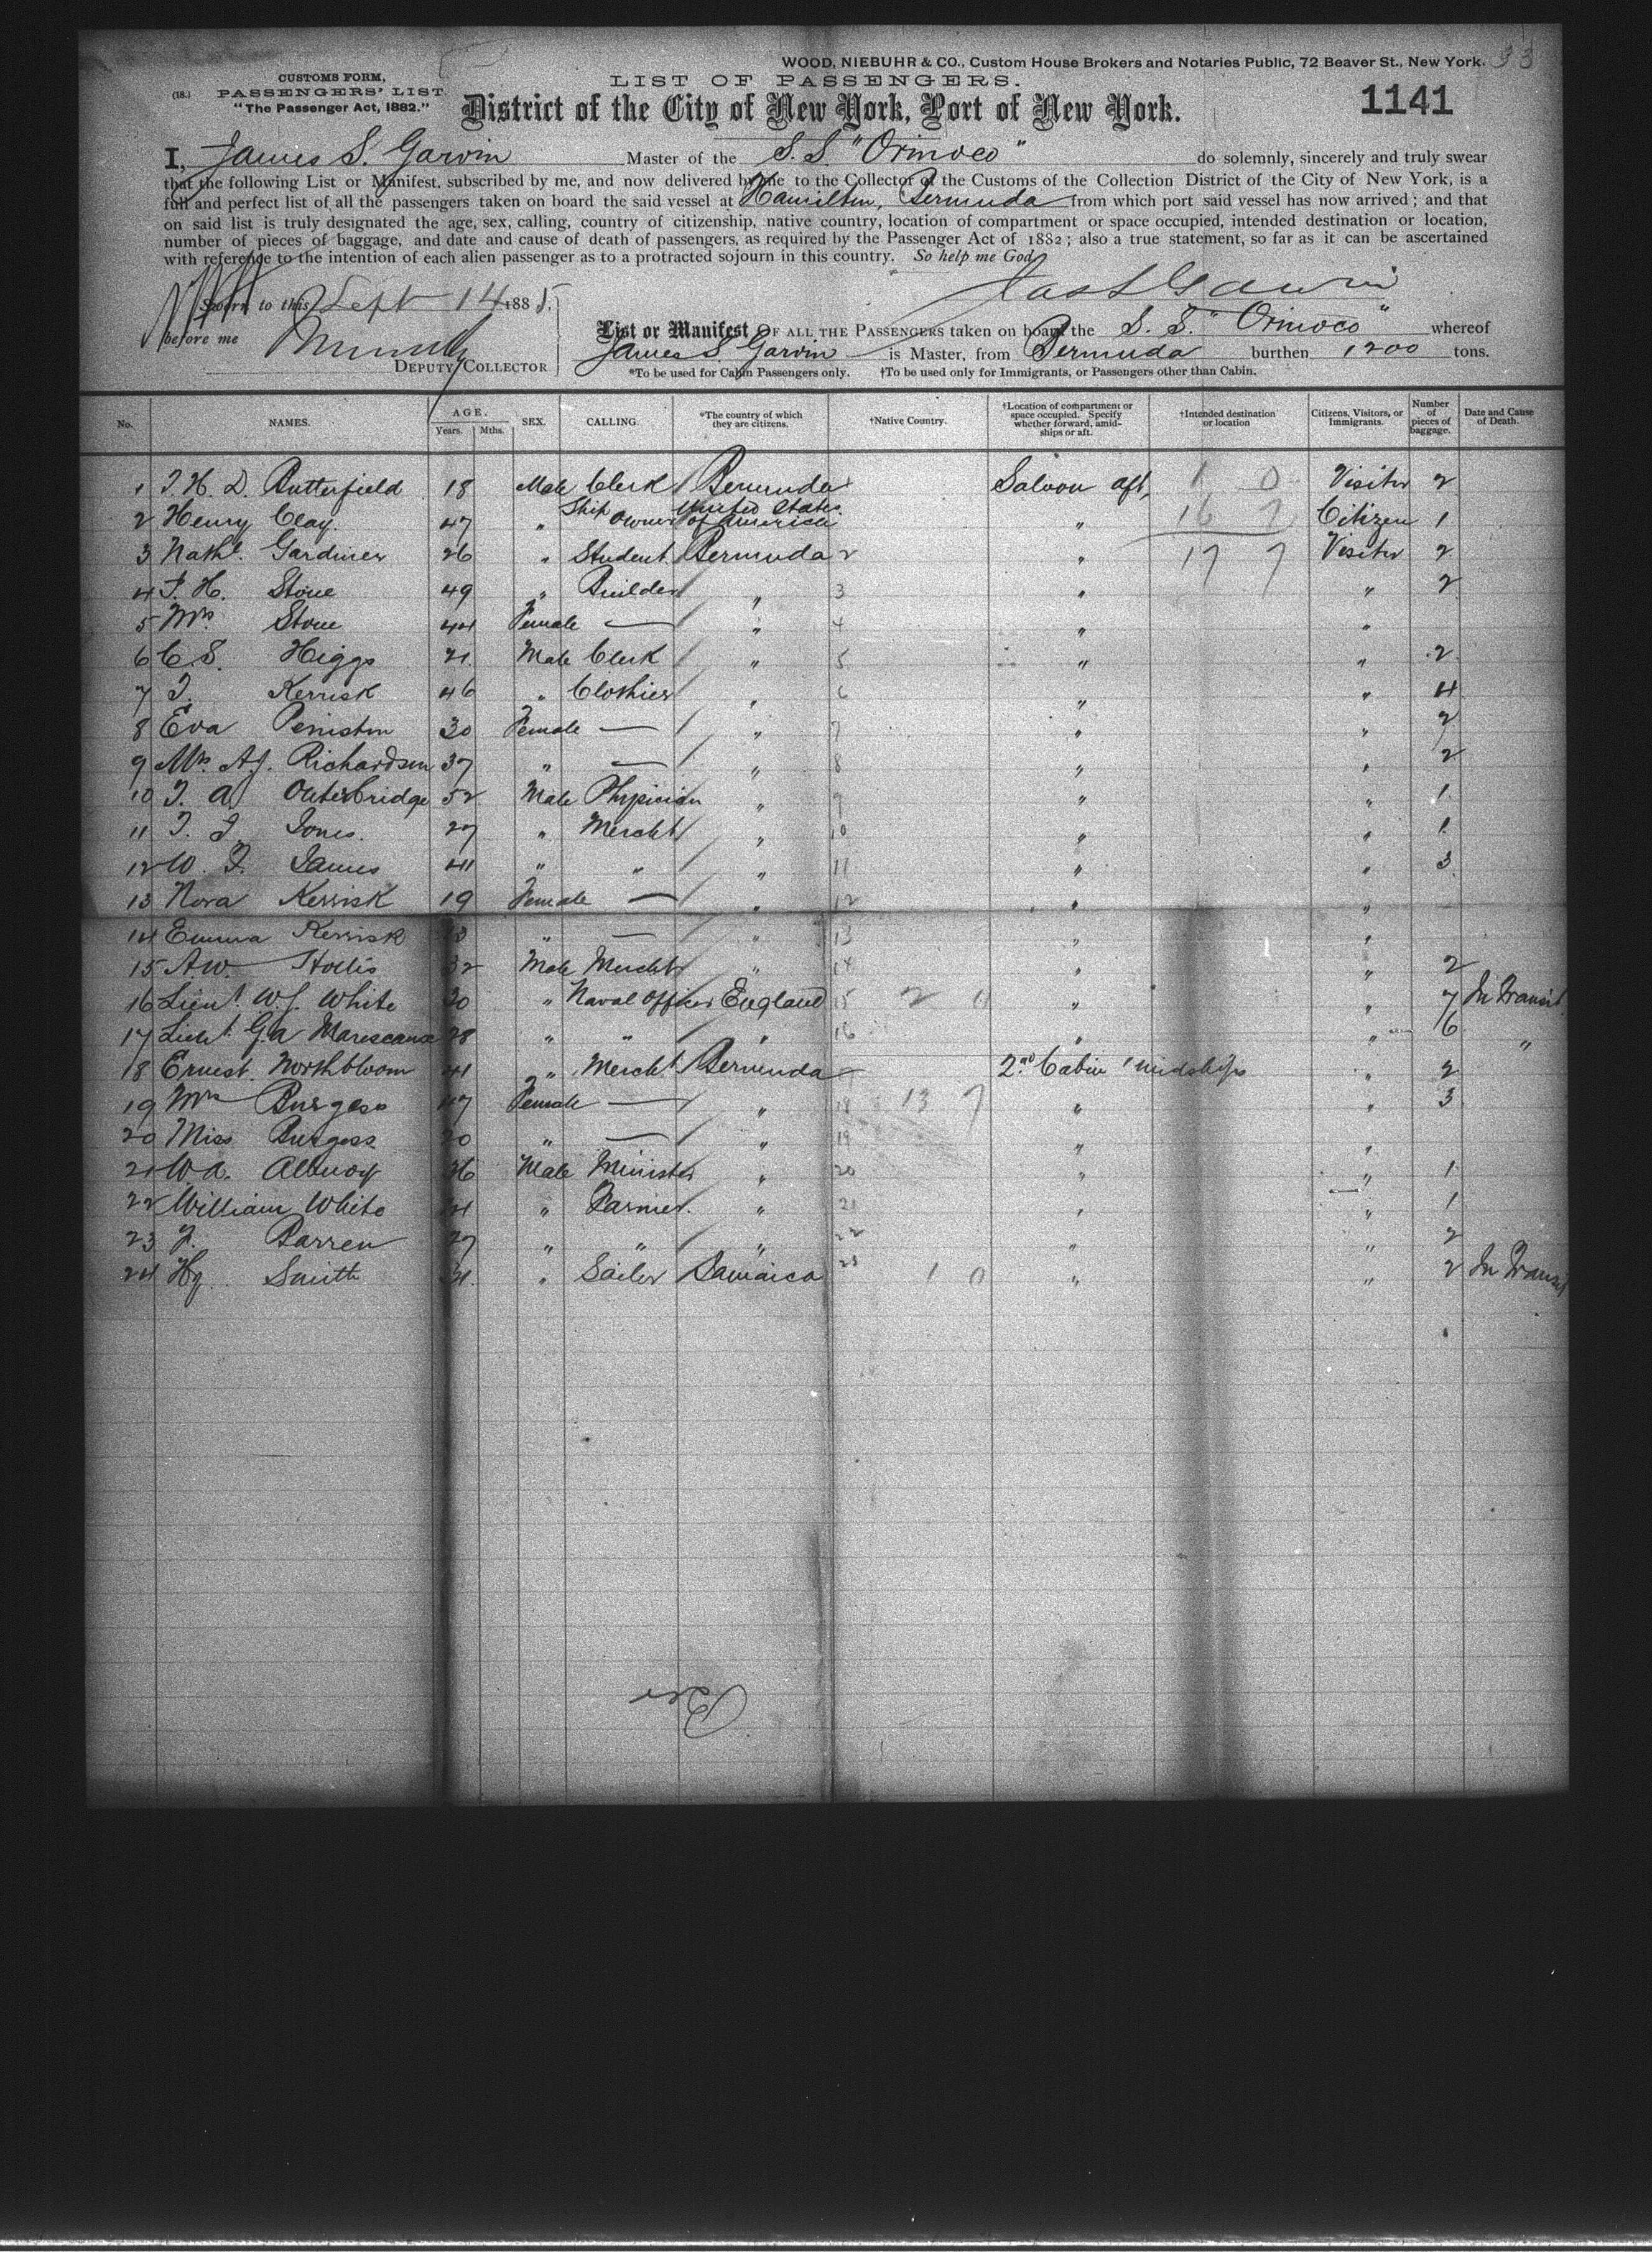 WOOD, NIEBUHR & CO., Custom House Brokers and Notaries Public, 72 Beaver St., New York. 33
CUSTOMS FORM,
(18.) PASSENGERS' LIST.
"The Passenger Act, 1882."
LIST OF PASSENGERS.
District of the City of New York, Port of New York.
1141
I, James S. Garvin Master of the S.S. "Orinoco" do solemnly, sincerely and truly swear
that the following List or Manifest, subscribed by me, and now delivered by me to the Collector of the Customs of the Collection District of the City of New York, is a
full and perfect list of all the passengers taken on board the said vessel at Hamilton, Bermuda from which port said vessel has now arrived; and that
on said list is truly designated the age, sex, calling, country of citizenship, native country, location of compartment or space occupied, intended destination or location,
number of pieces of baggage, and date and cause of death of passengers, as required by the Passenger Act of 1882; also a true statement, so far as it can be ascertained
with reference to the intention of each alien passenger as to a protracted sojourn in this country. So help me God.
Jas S Garvin
Sworn to this Sept 14 1885.
before me
DEPUTY COLLECTOR
List or Manifest OF ALL THE PASSENGERS taken on board the S. S. "Orinoco" whereof
James S. Garvin is Master, from Bermuda burthen 1200 tons.
*To be used for Cabin Passengers only. †To be used only for Immigrants, or Passengers other than Cabin.
No. NAMES. AGE. Years. Mths. SEX. CALLING. *The country of which they are citizens. †Native Country. †Location of compartment or space occupied. Specify whether forward, amidships or aft. †Intended destination or location Citizens, Visitors, or Immigrants. Number of pieces of baggage. Date and Cause of Death.
1 T. H. D. Butterfield 18 Male Clerk Bermuda 1 Saloon aft, 1 0 Visitor 2
2 Henry Clay. 47 " Ship Owner United States of America " 16 7 Citizen 1
3 Nathl. Gardiner 26 " Student Bermuda 2 " 17 7 Visitor 2
4 T. H. Stone 49 " Builder " 3 " " 2
5 Mrs Stone 44 Female — " 4 " "
6 C. S. Higgs 21. Male Clerk " 5 " " 2
7 T. Kerrisk 46 " Clothier " 6 " " 4
8 Eva Peniston 30 Female — " 7 " " 2
9 Mrs A.J. Richardson 37 " — " 8 " " 2
10 T. A. Outerbridge 52 Male Physician " 9 " " 1
11 T. J. Jones. 27 " Mercht " 10 " " 1
12 W. T. James 41 " " " 11 " " 3
13 Nora Kerrisk 19 Female — " 12 " "
14 Emma Kerrisk 13 " — " 13 " "
15 A.W. Hollis 32 Male Mercht " 14 " " 2
16 Lieut. W.J. White 30 " Naval Officer England 15 2 0 " " 7 In Transit
17 Lieut. G.A. Marescaux 28 " " " 16 " " 6 "
18 Ernest. Northbloom 41 " Mercht Bermuda 2nd Cabin 'midships " 2
19 Mrs Burgess 47 Female — " 18 13 7 " " 3
20 Miss Burgess 20 " — " 19 " "
21 W.A. Albuoy 36 Male Minister " 20 " " 1
22 William White 24 " Farmer. " 21 " " 1
23 J. Barren 27 " " " 22 " " 2
24 Hy. Smith 31. " Sailor Jamaica 23 1 0 " " 2 In Transit